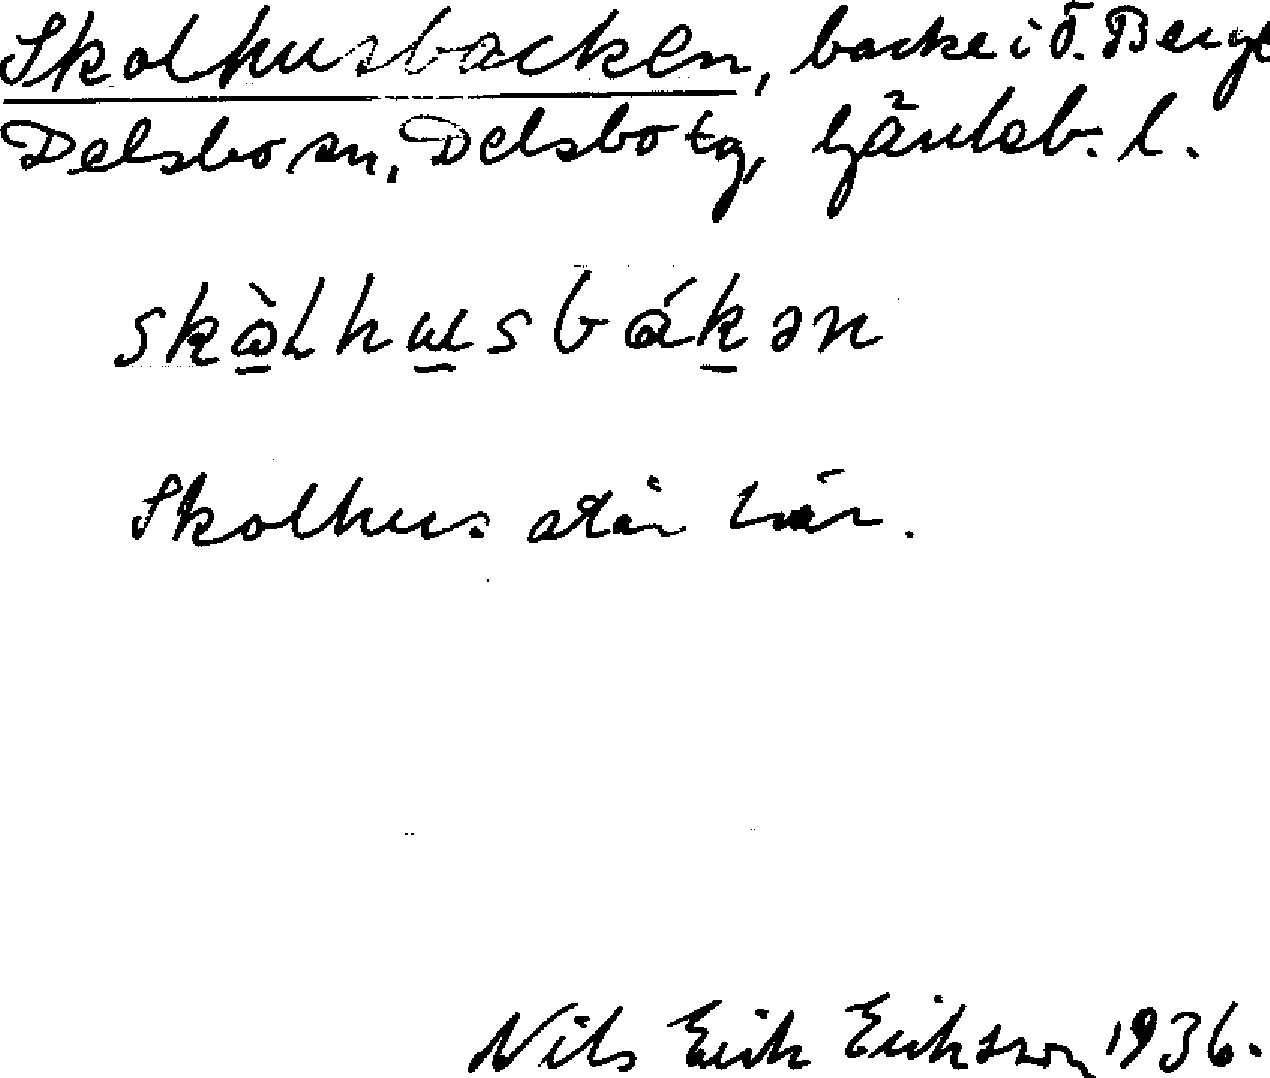 Skolhusbacken, backe i Ö. Berge
Delsbo sn, Delsbo tg, Gävleb. l.
skà̱Lhu̱sbáḵən
Skolhus står här.
Nils Erik Eriksson 1936.